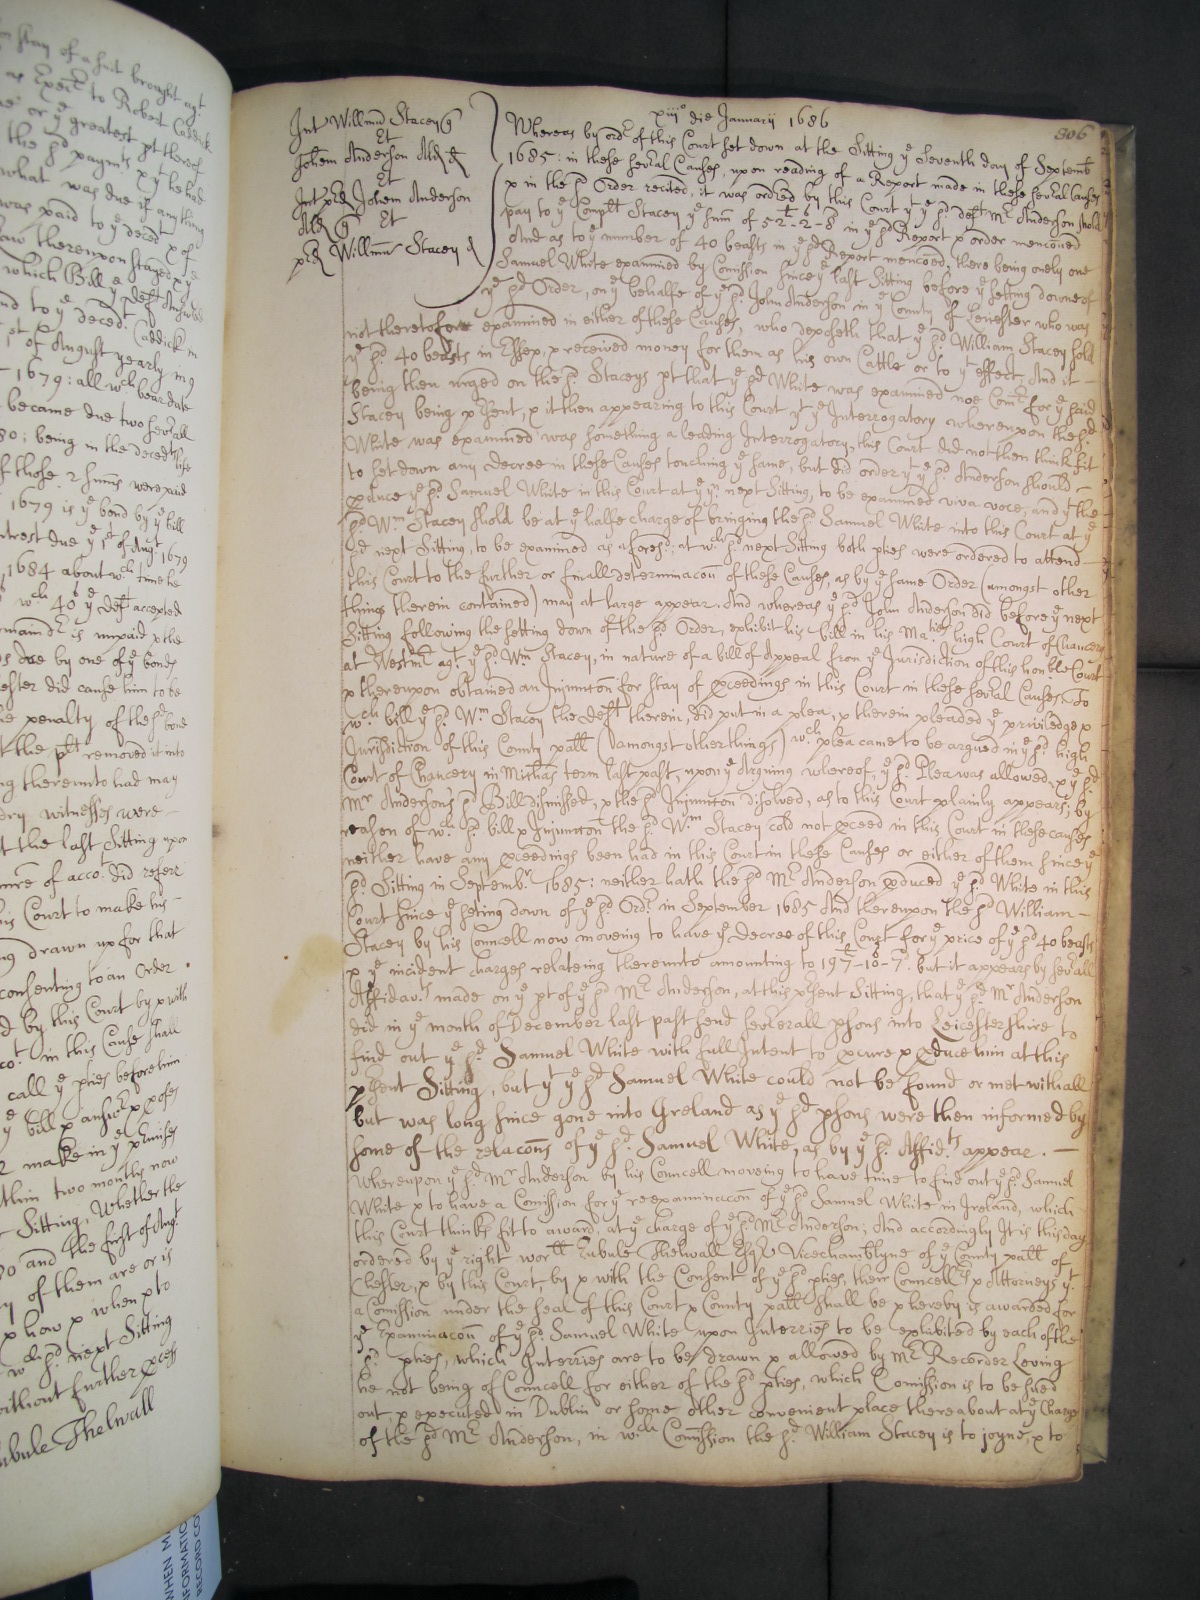 n stay of a suit brought agt
as Exectr to Robert Caddick
or ye greatest pt thereof
the sd paymts x yt he had
what was due if any thing
was paid to ye deced x of
Law thereupon stayed x
which Bill ye Deft Answered
and to ye deced: Caddick in
1st of August yearly in
1679: all wch bear date
became due two severall
80; being in the decedts life
of those 2 sumis were paid
1679 is ye bond by ye bill
Interest due ye 1st of Augt 1679
1684 about wch time he
wch 40li ye Deft accepted
remaindr is unpaid x the
due by one of ye bonds
did cause him to be
penalty of the sd bond
the plt removed it into
thereunto had may
witnesses were
at the last Sitting upon
of accot did referr
this Court to make his
drawn up for that
consenting to an Order
by this Court by x with
in this Cause shall
call ye pties before him
ye bill x answr x x ofes
make in ye pmises
within two months now
Sitting, Whether the
and the first of Augt
of them are or is
x how x when x to
wch sd next Sitting
without further pcess
Eubule Thelwall
806
xiiio die Januarij 1686
Int Willmu Stacey q
Et
Johem Anderson Alq d
Et
Int pred Johem Anderson
Alq q Et
pred Willmu Stacey d
Whereas by ordr of this Court set down at the Sitting ye Seventh day of Septembr
1685: in these sevral Causes, upon reading of a Report made in these sevral Causes
x in the sd Order recited, it was ordred by this Court yt ye sd deft Mr Anderson shold
pay to ye Complt Stacey ye sum of 52l-2s-8 in ye sd Report x order menconed
And as to ye number of 40 beasts in ye sd Report menconed, there being onely one
Samuel White examined by Comission since ye last Sitting before ye setting downe of
ye sd Order, on ye behalfe of ye sd John Anderson in ye County of Leicester who was
not theretofore examined in either of these Causes, who deposeth that ye sd William Stacey sold
ye sd 40 beasts in Essex, x received money for them as his own Cattle or to yt effect, And it
being then urged on the sd Staceys pt that ye sd White was examined noe Comr for ye said
Stacey being psent, x it then appearing to this Court yt ye Interrogatory whereupon the sd
White was examined was something a leading Interrogatory, this Court did not then think fit
to set down any decree in these Causes touching ye same, but did order yt ye sd Anderson should
pduce ye sd Samuel White in this Court at ye yn next Sitting, to be examined viva voce, and yt the
sd Wm Stacey shold be at ye halfe charge of bringing the sd Samuel White into this Court at ye
sd next Sitting, to be examined as aforesd; at wch sd next Sitting both pties were ordered to attend
this Court to the further or finall determinacon of these Causes, as by ye same Order (amongst other
things therein contained) may at large appear. And whereas ye sd John Anderson did before ye next
Sitting following the setting down of the sd Order, exhibit his bill in his Maties high Court of Chancery
at Westmr agt ye sd Wm Stacey, in nature of a bill of Appeal from ye Jurisdiction of this honble Court
x thereupon obtained an Injuncton for stay of pceedings in this Court in these sevral Causes. To
wch bill ye sd Wm Stacey the Deft therein, did put in a plea, x therein pleaded ye priviledge x
Jurisdiction of this County pall (amongst other things) wch plea came to be argued in ye sd high
Court of Chancery in Michas term last past, upon ye Arguing whereof, ye sd Plea was allowed, x ye sd
Mr Anderson's sd Bill dismissed, x the sd Injuncton disolved, as to this Court plainly appears; by
reason of wch sd bill x Injuncton the sd Wm Stacey cold not pceed in this Court in these causes
neither have any pceedings been had in this Court in these Causes or either of them since ye
sd Sitting in Septembr 1685: neither hath the sd Mr Anderson pduced ye sd White in this
Court since ye seting down of ye sd Ordr in September 1685 And thereupon the sd William
Stacey by his Councell now moveing to have ye decree of this Court for ye price of ye sd 40 beasts
x ye incident charges relateing thereunto amounting to 197l-18s-7d. but it appears by sevrall
Affidavts made on ye pt of ye sd Mr Anderson, at this psent Sitting, that ye sd Mr Anderson
did in ye month of December last past send severall psons into Leicestershire to
find out ye sd Samuel White with full Intent to pcure x pduce him at this
psent Sitting, but yt ye sd Samuel White could not be found or met withall
but was long since gone into Ireland as ye sd psons were then informed by
some of the relacons of ye sd Samuel White, as by ye sd Affidts appear.
Whereupon ye sd Mr Anderson by his Councell moveing to have time to find out ye sd Samuel
White x to have a Comission for ye reexaminacon of ye sd Samuel White in Ireland, which
this Court thinks fit to award, at ye charge of ye sd Mr Anderson; And accordingly It is this day
ordered by ye right worll Eubule Thelwall Esqr Vicechamblyne of ye County pall of
Chester, x by this Court, by x with the Consent of ye sd pties, their Councells x Attorneys yt
a Comission under the seal of this Court x County pall shall be x hereby is awarded for
ye Examinacon of ye sd Samuel White upon Interries to be exhibited by each of the
sd pties, which Interries are to be drawn x allowed by Mr Recorder Leving
he not being of Councell for either of the sd pties, which Comission is to be sued
out, x executed in Dublin or some other convenient place thereabout at ye Charge
of the sd Mr Anderson, in wch Comission the sd William Stacey is to joyne, x to
WHEN M
INFORMATIO
RECORD CO